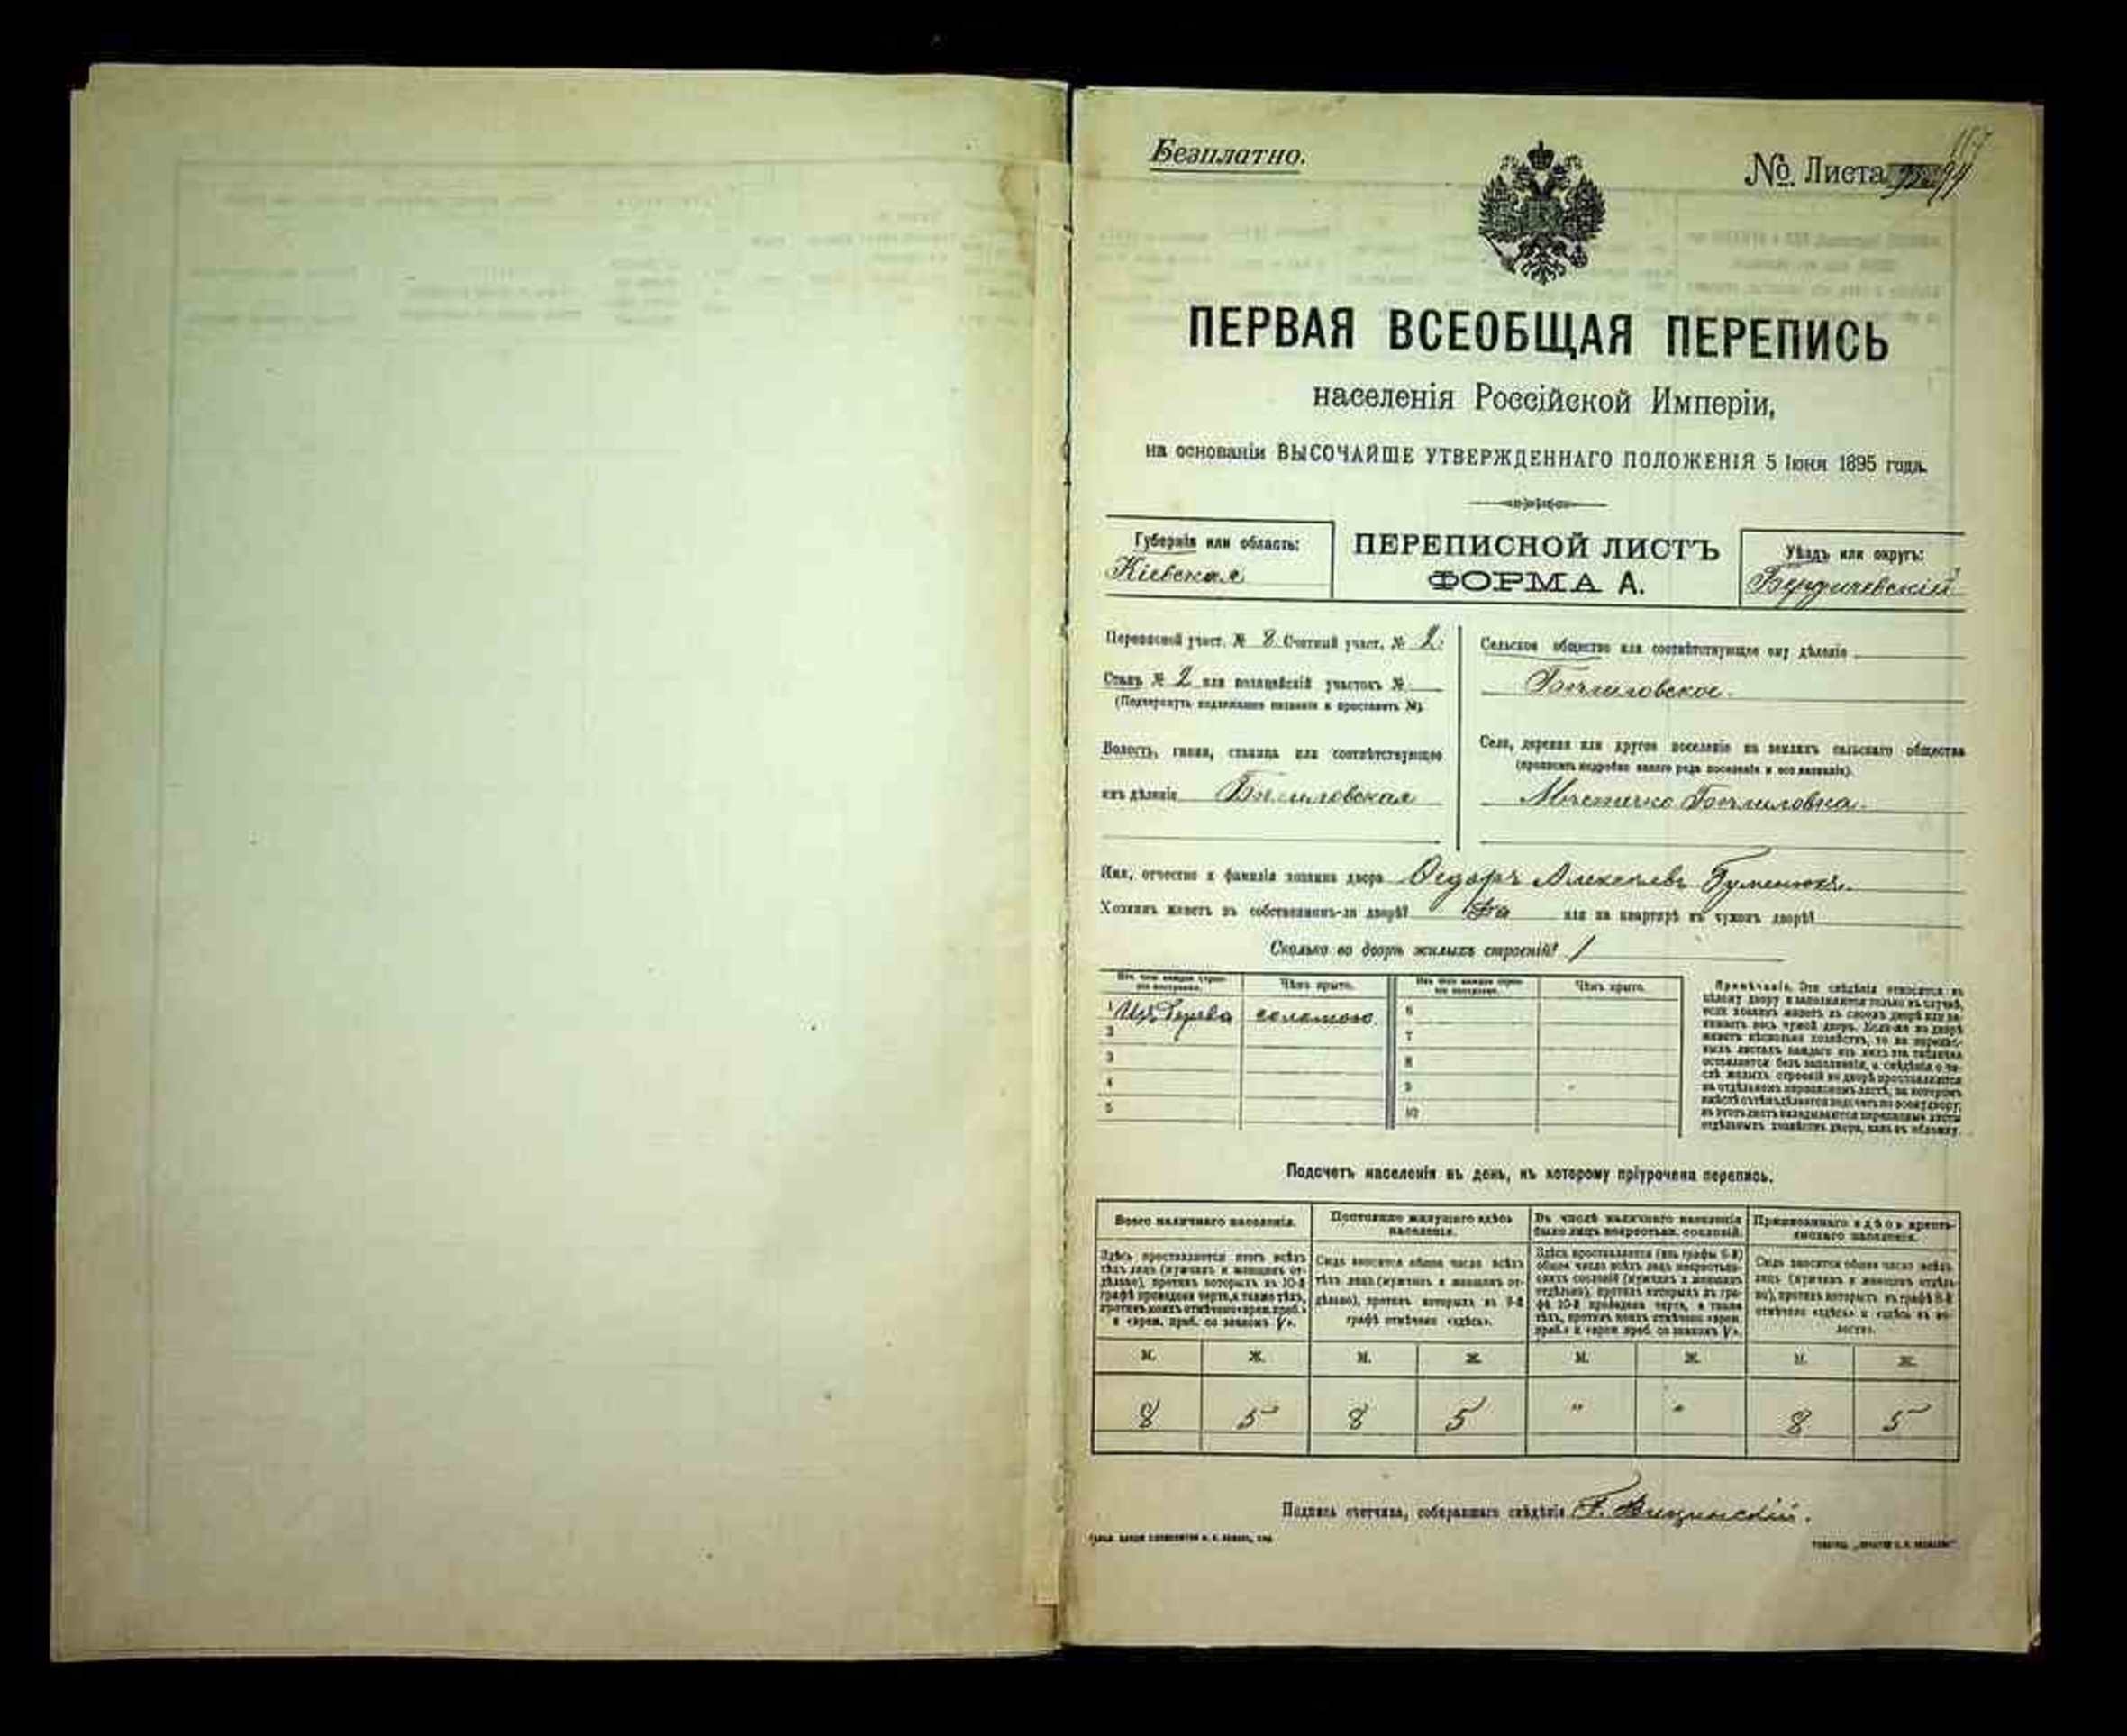 Безплатно.
№ Листа 94
ПЕРВАЯ ВСЕОБЩАЯ ПЕРЕПИСЬ
населенія Россійской Имперіи,
на основаніи ВЫСОЧАЙШЕ УТВЕРЖДЕННАГО ПОЛОЖЕНІЯ 5 Іюня 1895 года.
Губернія или область:
Кіевская
ПЕРЕПИСНОЙ ЛИСТЪ
ФОРМА А.
Уѣздъ или округъ:
Бердичевскій
Переписной участ. № 8 Счетный участ. № 2
Станъ № 2 или полицейскій участокъ №
(Подчеркнуть надлежащее названіе и проставить №).
Волость, гмина, станица или соотвѣтствующее
имъ дѣленіе Бѣлиловская
Сельское общество или соотвѣтствующее ему дѣленіе
Бѣлиловское.
Село, деревня или другое поселеніе на земляхъ сельскаго общества
(прописать подробно какого рода поселеніе и его названіе).
Мѣстечко Бѣлиловка.
Имя, отчество и фамилія хозяина двора Ѳедоръ Алексѣевъ Гуменюкъ.
Хозяинъ живетъ въ собственномъ-ли дворѣ? Да или на квартирѣ въ чужомъ дворѣ?
Сколько во дворѣ жилыхъ строеній? 1
Изъ чего каждое строеніе построено.
Чѣмъ крыто.
Изъ чего каждое строеніе построено.
Чѣмъ крыто.
1 Изъ дерева соломою. 6
2 7
3 8
4 9
5 10
Примѣчаніе. Эти свѣдѣнія относятся къ
цѣлому двору и заполняются только въ случаѣ,
если хозяинъ живетъ въ своемъ дворѣ или занимаетъ
весь чужой дворъ. Если-же во дворѣ
живетъ нѣсколько хозяйствъ, то на переписныхъ
листахъ каждаго изъ нихъ эта табличка
оставляется безъ заполненія, а свѣдѣнія о числѣ
жилыхъ строеній во дворѣ проставляются
на отдѣльномъ переписномъ листѣ, на которомъ
вмѣстѣ съ тѣмъ дѣлается подсчетъ по всему двору;
въ этотъ листъ вкладываются переписные листы
отдѣльныхъ хозяйствъ двора, какъ въ обложку.
Подсчетъ населенія въ день, къ которому пріурочена перепись.
Всего наличнаго населенія.
Здѣсь проставляется итогъ всѣхъ
тѣхъ лицъ (мужчинъ и женщинъ отдѣльно),
противъ которыхъ въ 10-й
графѣ проведена черта, а также тѣхъ,
противъ коихъ отмѣчено «врем. преб.»
и «врем. преб. со знакомъ V».
Постоянно живущаго здѣсь
населенія.
Сюда вносится общее число всѣхъ
тѣхъ лицъ (мужчинъ и женщинъ отдѣльно),
противъ которыхъ въ 9-й
графѣ отмѣчено «здѣсь».
Въ числѣ наличнаго населенія
было лицъ некрестьян. сословій.
Здѣсь проставляется (изъ графы 6-й)
общее число всѣхъ лицъ некрестьянскихъ
сословій (мужчинъ и женщинъ
отдѣльно), противъ которыхъ въ графѣ
10-й проведена черта, а также
тѣхъ, противъ коихъ отмѣчено «врем.
преб.» и «врем. преб. со знакомъ V».
Приписаннаго здѣсь крестьянскаго
населенія.
Сюда вносится общее число всѣхъ
лицъ (мужчинъ и женщинъ отдѣльно),
противъ которыхъ въ графѣ 8-й
отмѣчено «здѣсь» и «здѣсь въ волости».
М. Ж. М. Ж. М. Ж. М. Ж.
8 5 8 5 " " 8 5
Подпись счетчика, собиравшаго свѣдѣнія